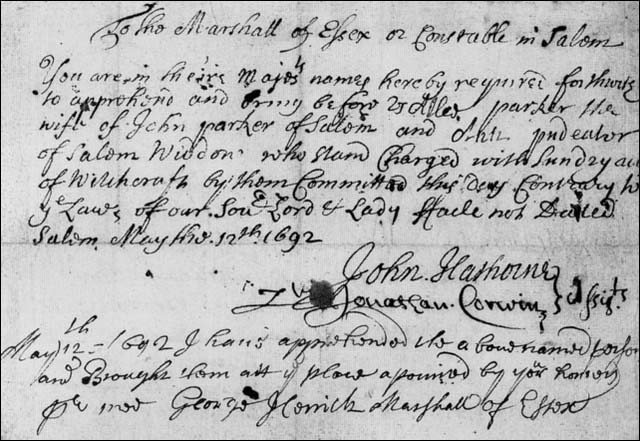 To the Marshall of Essex or Constable in Salem
You are in theire Majest's names hereby required forthwith
to apprehend and bring before us Allce parker the
wife of John parker of Salem and Ann pudeator
of Salem Widdow who stand Charged with Sundry acts
of Witchcraft by them Committed this day Contrary to
ye Laws of our Sovr Lord & Lady ffaile not Dated
Salem May the 12th 1692
John Hathorne
Jonathan. Corwin } Assists
May 12th 1692 I have apprehended the above named persons
and Brought them att ye place apointed by your honers
pr mee George Herrick Marshall of Essex